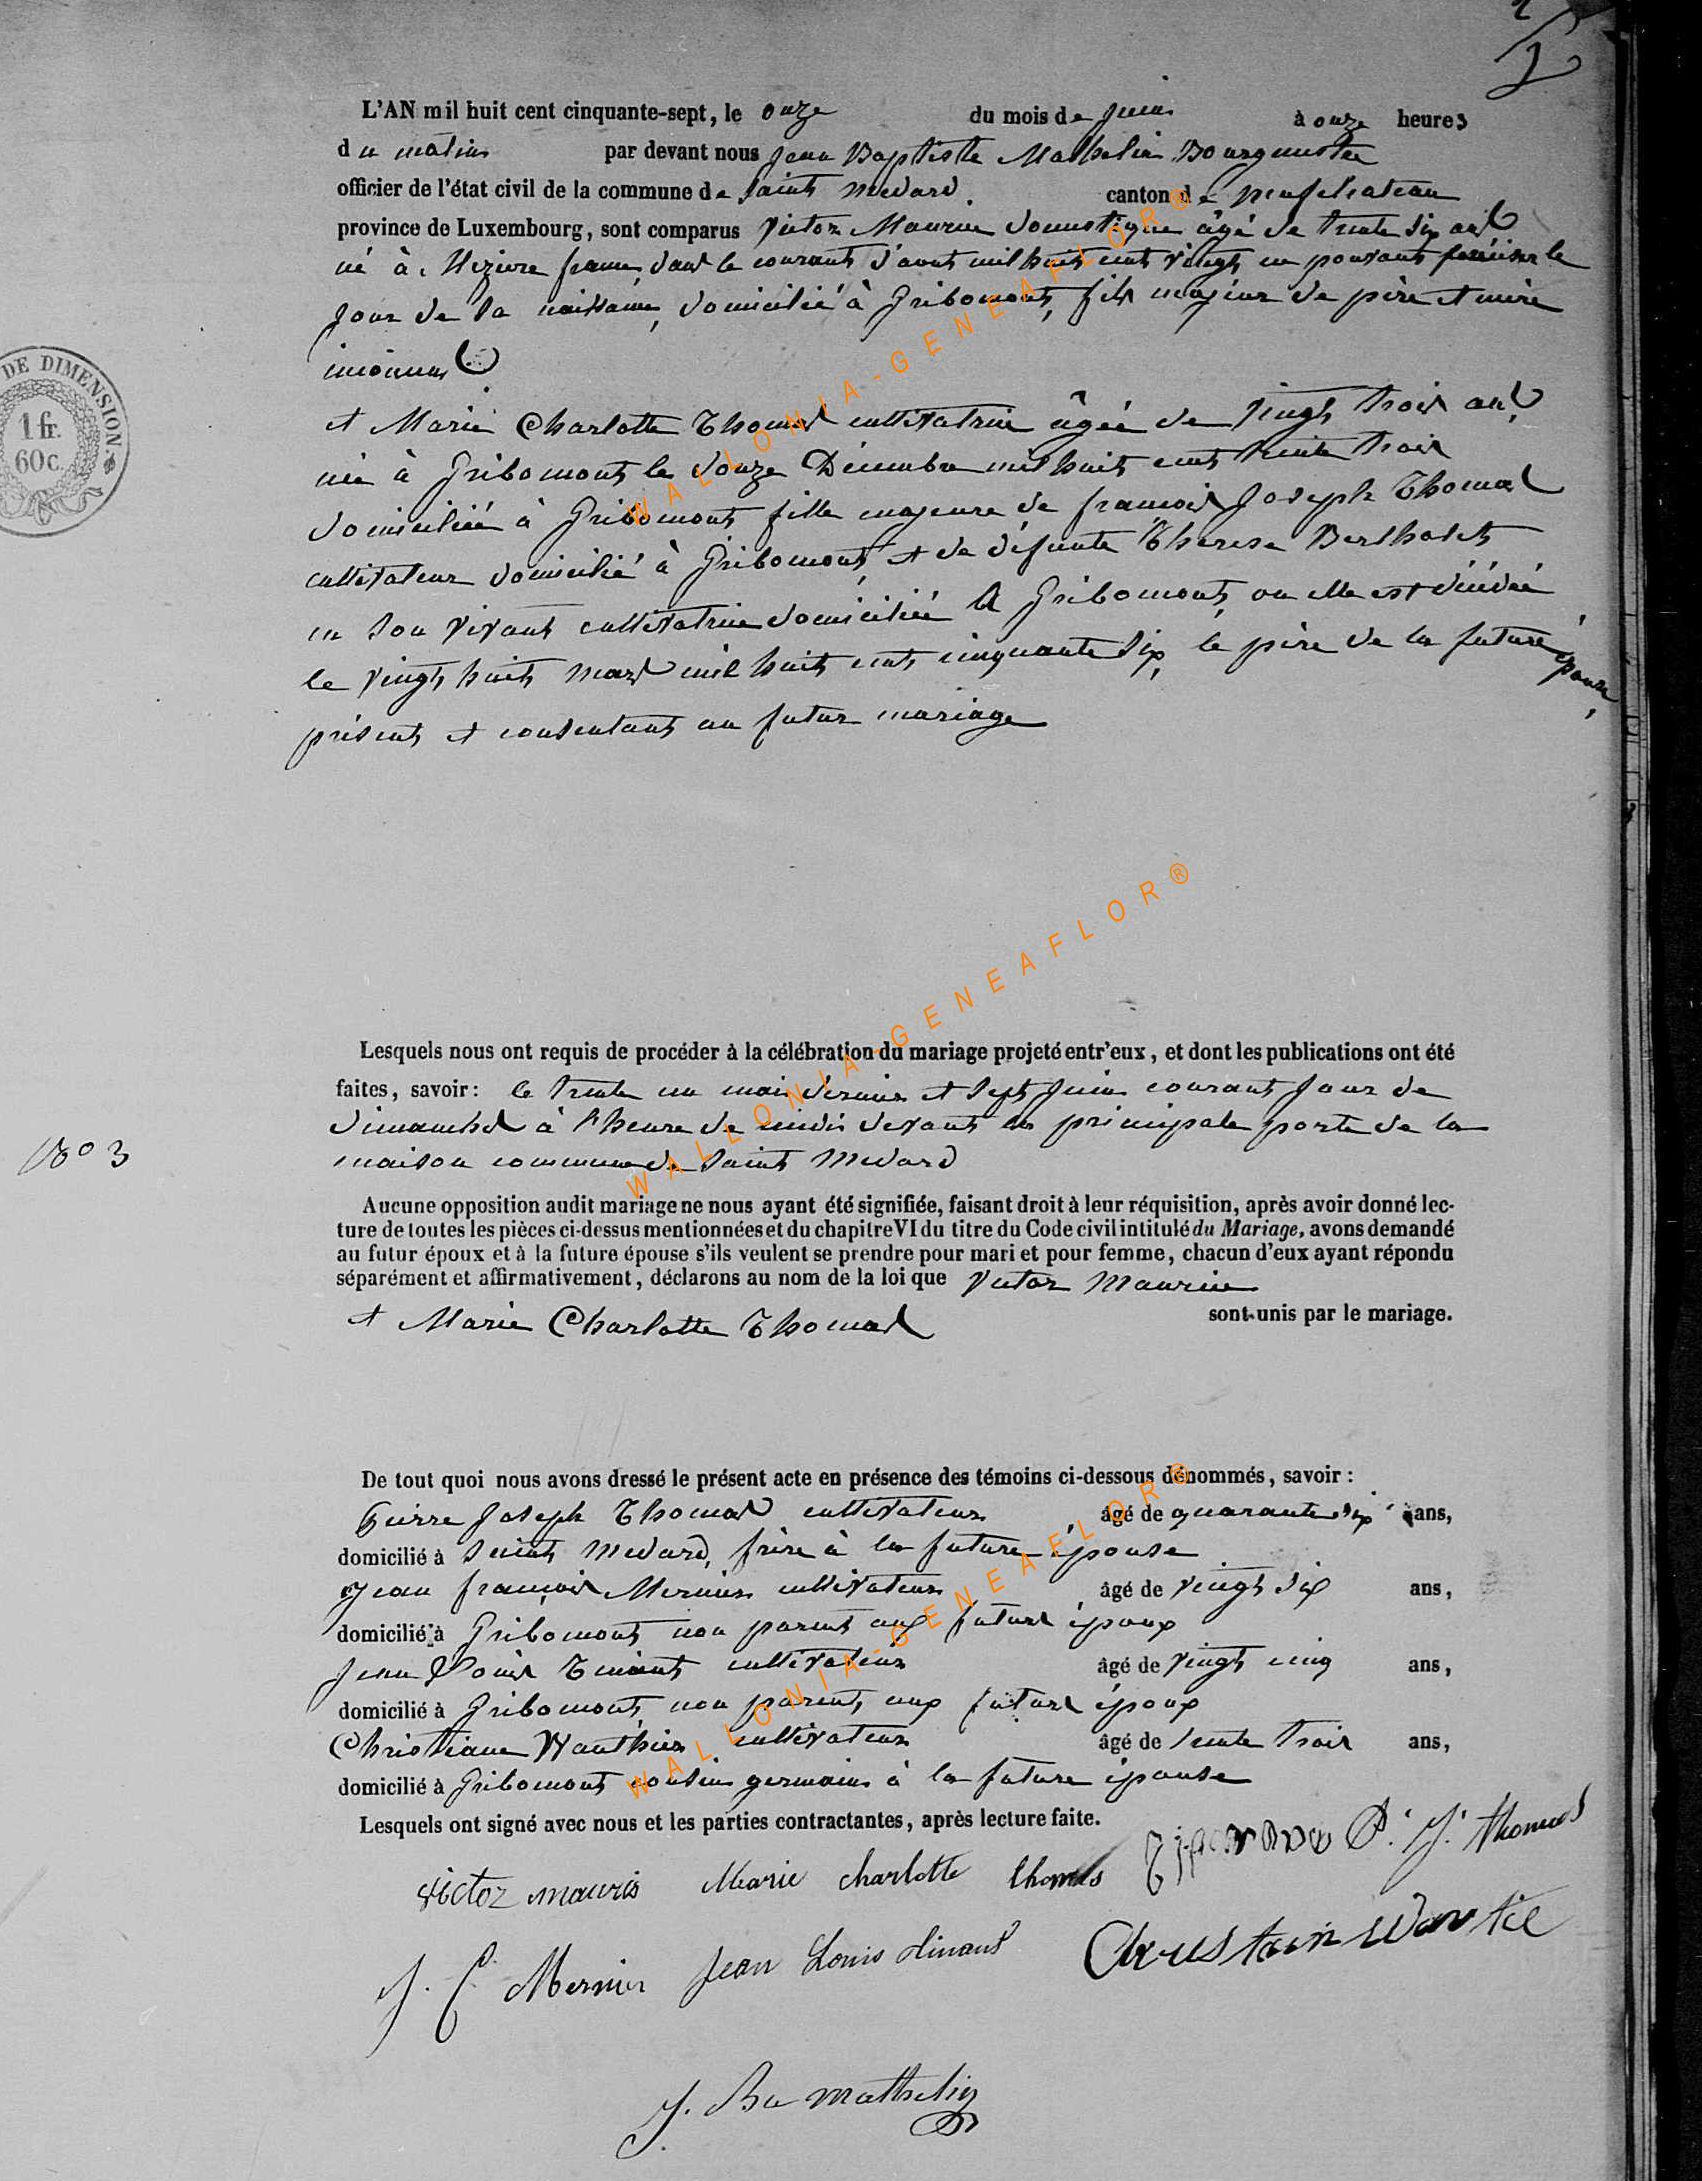 L'AN mil huit cent cinquante-sept, le onze du mois de juin à onze heures
du matin par devant nous Jean Baptiste Mathelin Bourgmestre
officier de l'état civil de la commune de Saint Medard canton de neufchateau
province de Luxembourg, sont comparus Victor Maurice domestique âgé de trente six ans
né à Meziere france dans le courant d'aout mil huit cent vingt un pouvant préciser le
jour de sa naissance, domicilié à Gribomont, fils majeur de père et mère
inconnus
DE DIMENSION.
1 fr.
60 c.
et Marie Charlotte Thomas cultivatrice âgée de vingt trois ans
née à Gribomont le douze Décembre mil huit cent trente trois
domiciliée à Gribomont fille majeure de francois Joseph Thomas
cultivateur domicilié à Gribomont et de défunte Therese Bertholet
en son vivant cultivatrice domiciliée à Gribomont, ou elle est décédée
le vingt huit mars mil huit cent cinquante six, le père de la future épouse,
présent et consentant au futur mariage
Lesquels nous ont requis de procéder à la célébration du mariage projeté entr'eux, et dont les publications ont été
faites, savoir: le trente un mai dernier et sept juin courant jour de
dimanche à l'heure de midi devant la principale porte de la
No 3
maison commune de Saint Medard
Aucune opposition audit mariage ne nous ayant été signifiée, faisant droit à leur réquisition, après avoir donné lec-
ture de toutes les pièces ci-dessus mentionnées et du chapitre VI du titre du Code civil intitulé du Mariage, avons demandé
au futur époux et à la future épouse s'ils veulent se prendre pour mari et pour femme, chacun d'eux ayant répondu
séparément et affirmativement, déclarons au nom de la loi que Victor Maurice
et Marie Charlotte Thomas sont unis par le mariage.
De tout quoi nous avons dressé le présent acte en présence des témoins ci-dessous dénommés, savoir :
Pierre Joseph Thomas cultivateur âgé de quarante six ans,
domicilié à Saint Medard, frère à la future épouse
Jean françois Mernier cultivateur âgé de vingt six ans,
domicilié à Gribomont non parent aux futurs époux
Jean Louis Tinant cultivateur âgé de vingt cinq ans,
domicilié à Gribomont non parent aux futurs époux
Christiane Wauthier cultivateur âgé de trente trois ans,
domicilié à Gribomont cousin germain à la future épouse
Lesquels ont signé avec nous et les parties contractantes, après lecture faite.
P. J. thomas
victor mauris Marie charlotte thomas
J. f. Mernier Jean Louis tinant Christain Wautie
J. Ba mathelin
WALLONIA-GENEAFLOR®
WALLONIA-GENEAFLOR®
WALLONIA-GENEAFLOR®